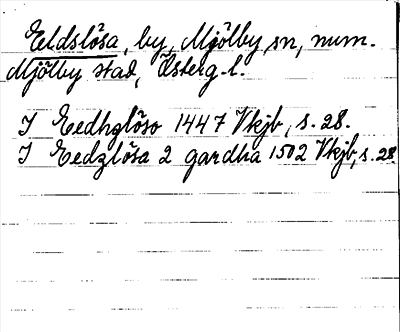 Eeldslösa, by, Mjölby sn, num.
Mjölby stad, Österg. l.
I Eedhglöso 1447 Vkjb, s. 28.
I Eedzlösa 2 gardha 1502 Vkjb, s. 28.